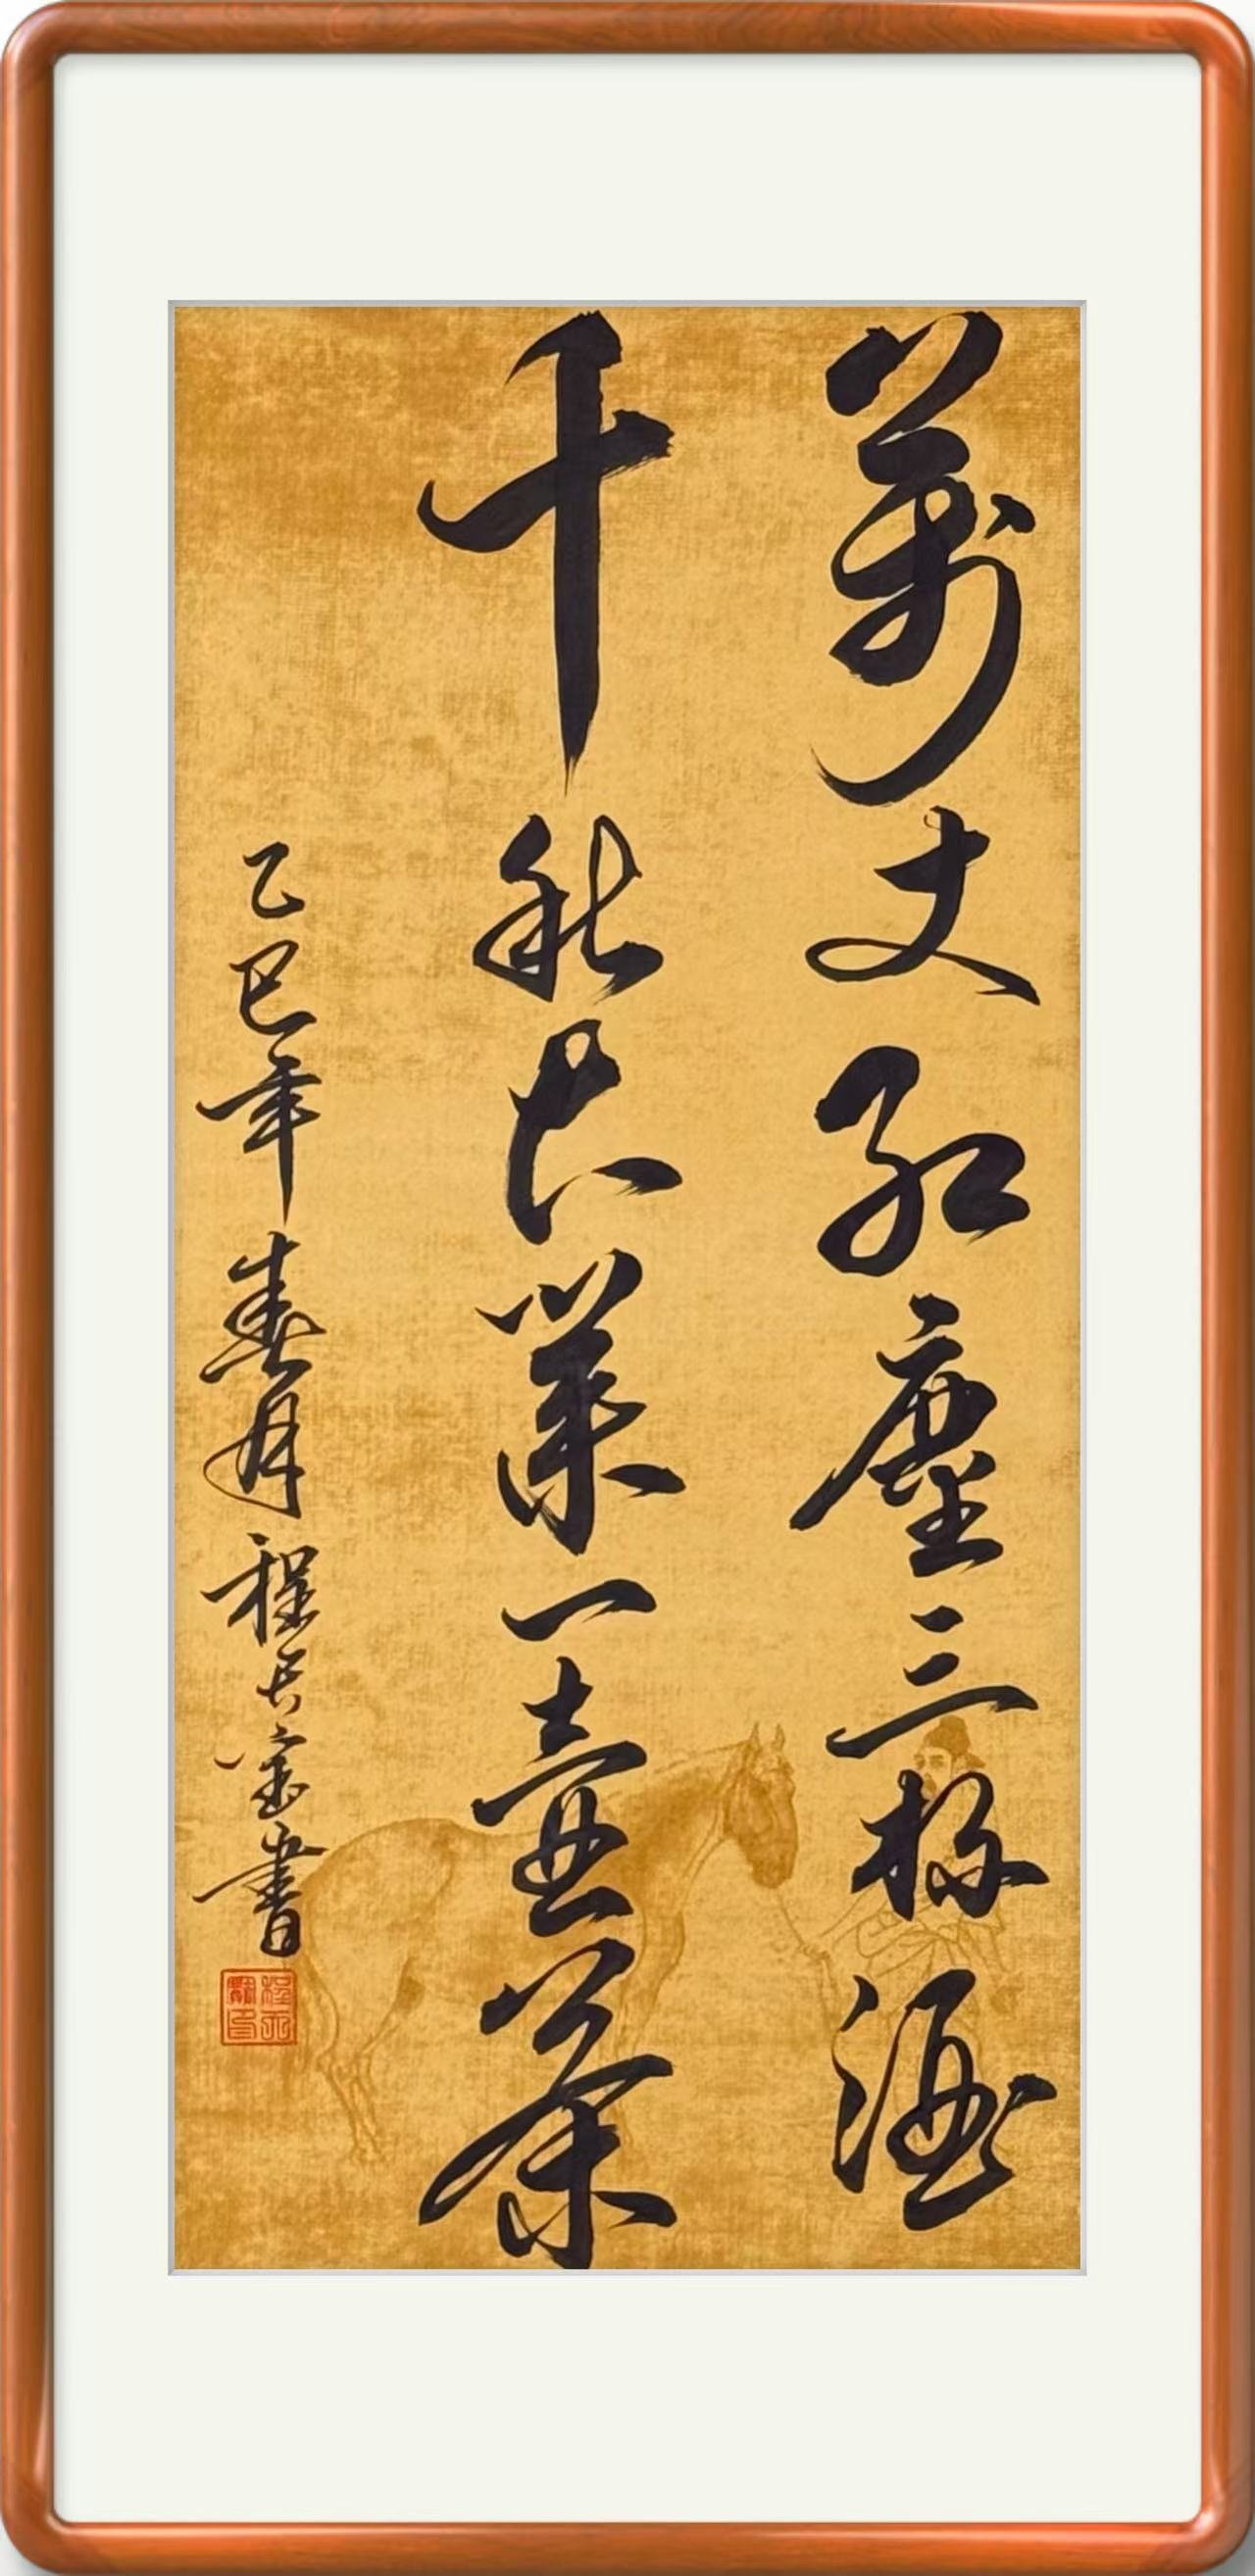 萬丈紅塵三杯酒
千秋大業一壺茶
乙巳年春月程天宝書